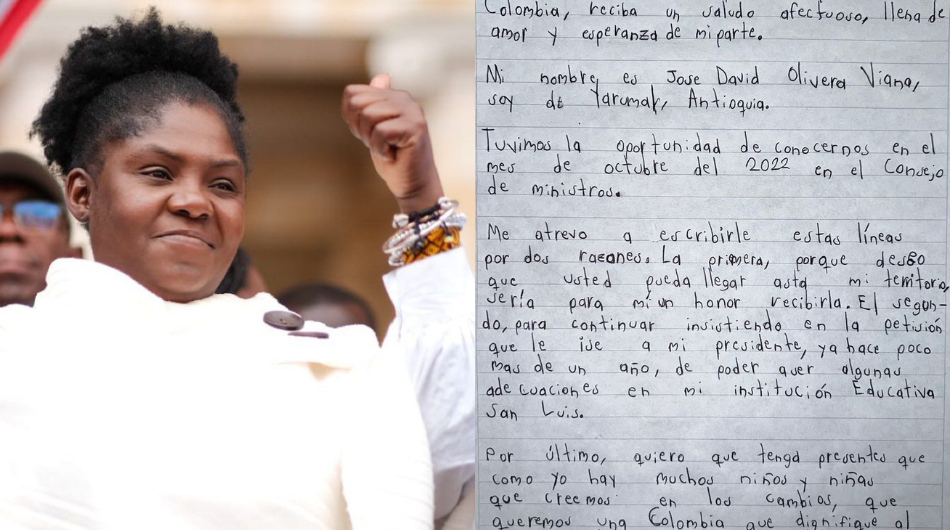 Colombia, reciba un saludo afectuoso, llena de
amor y esperanza de mi parte.
Mi nombre es Jose David Olivera Viana,
soy de Yarumal, Antioquia.
Tuvimos la oportunidad de conocernos en el
mes de octubre del 2022 en el Consejo
de ministros.
Me atrevo a escribirle estas líneas
por dos razones. La primera, porque deseo
que usted pueda llegar asta mi territorio,
sería para mí un honor recibirla. El segun-
do, para continuar insistiendo en la petisión
que le ise a mi presidente, ya hace poco
mas de un año, de poder aver algunas
adecuaciones en mi institución Educativa
San Luis.
Por último, quiero que tenga presentes que
como yo hay muchos niños y niñas
que creemos en los cambios, que
queremos una Colombia que dignifique al